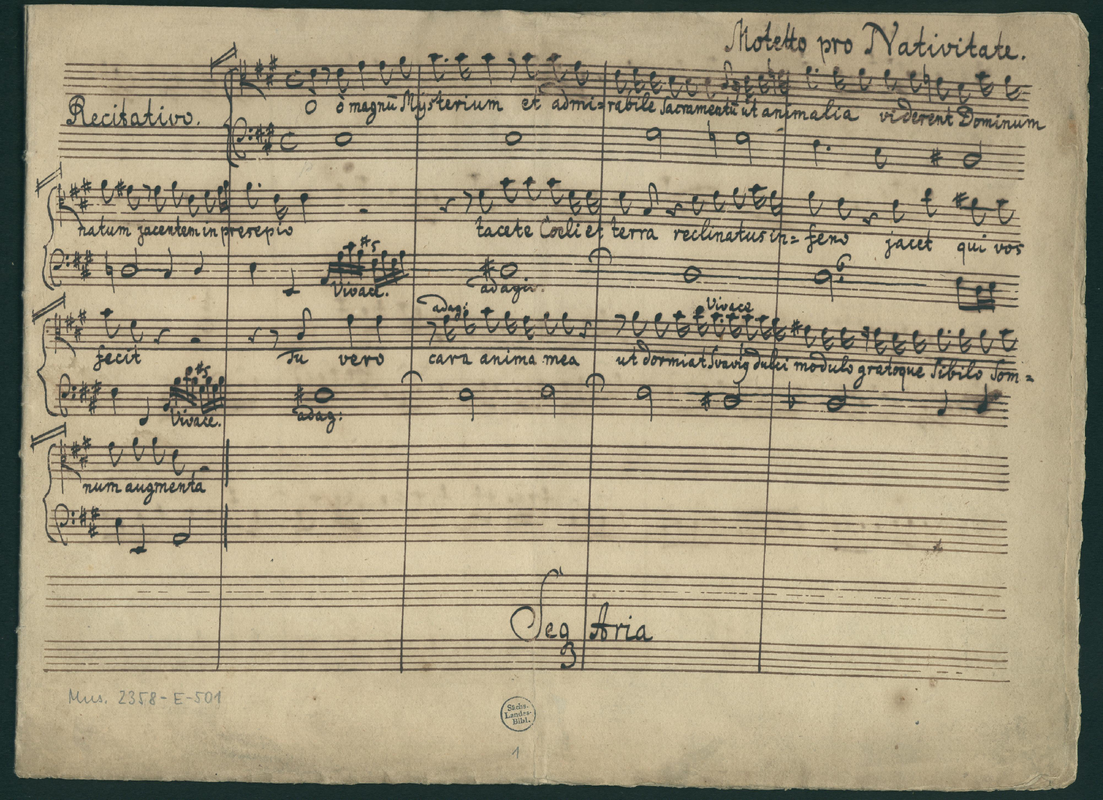 Motetto pro Nativitate.
Recitativo.
O ō magnū Mysterium et admi=rabile Sacramentū ut animalia viderent Dominum
natum jacentem in presepio tacete Coeli et terra reclinatus in= feno jacet qui vos
Vivace. adagio.
adag: Vivace
fecit Tu vero cara anima mea ut dormiat Svavig dulci modulo gratoque Sibilo Som=
Vivace. adag:
num augmenta
Seq Aria
3
Mus. 2358-E-501
Sächs.
Landes-
Bibl.
1